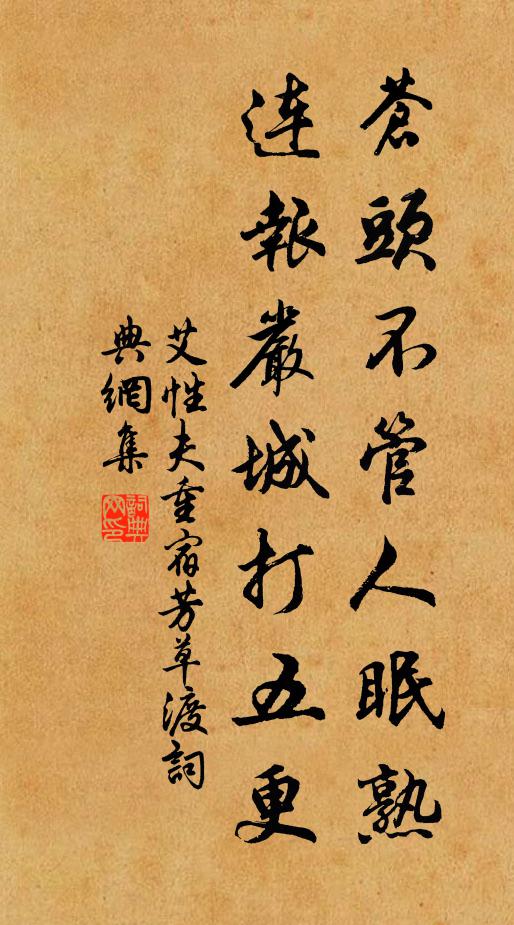 蒼頭不管人眠熟
連報嚴城打五更
艾性夫重宿芳草渡詞
典網集
詞典
網印